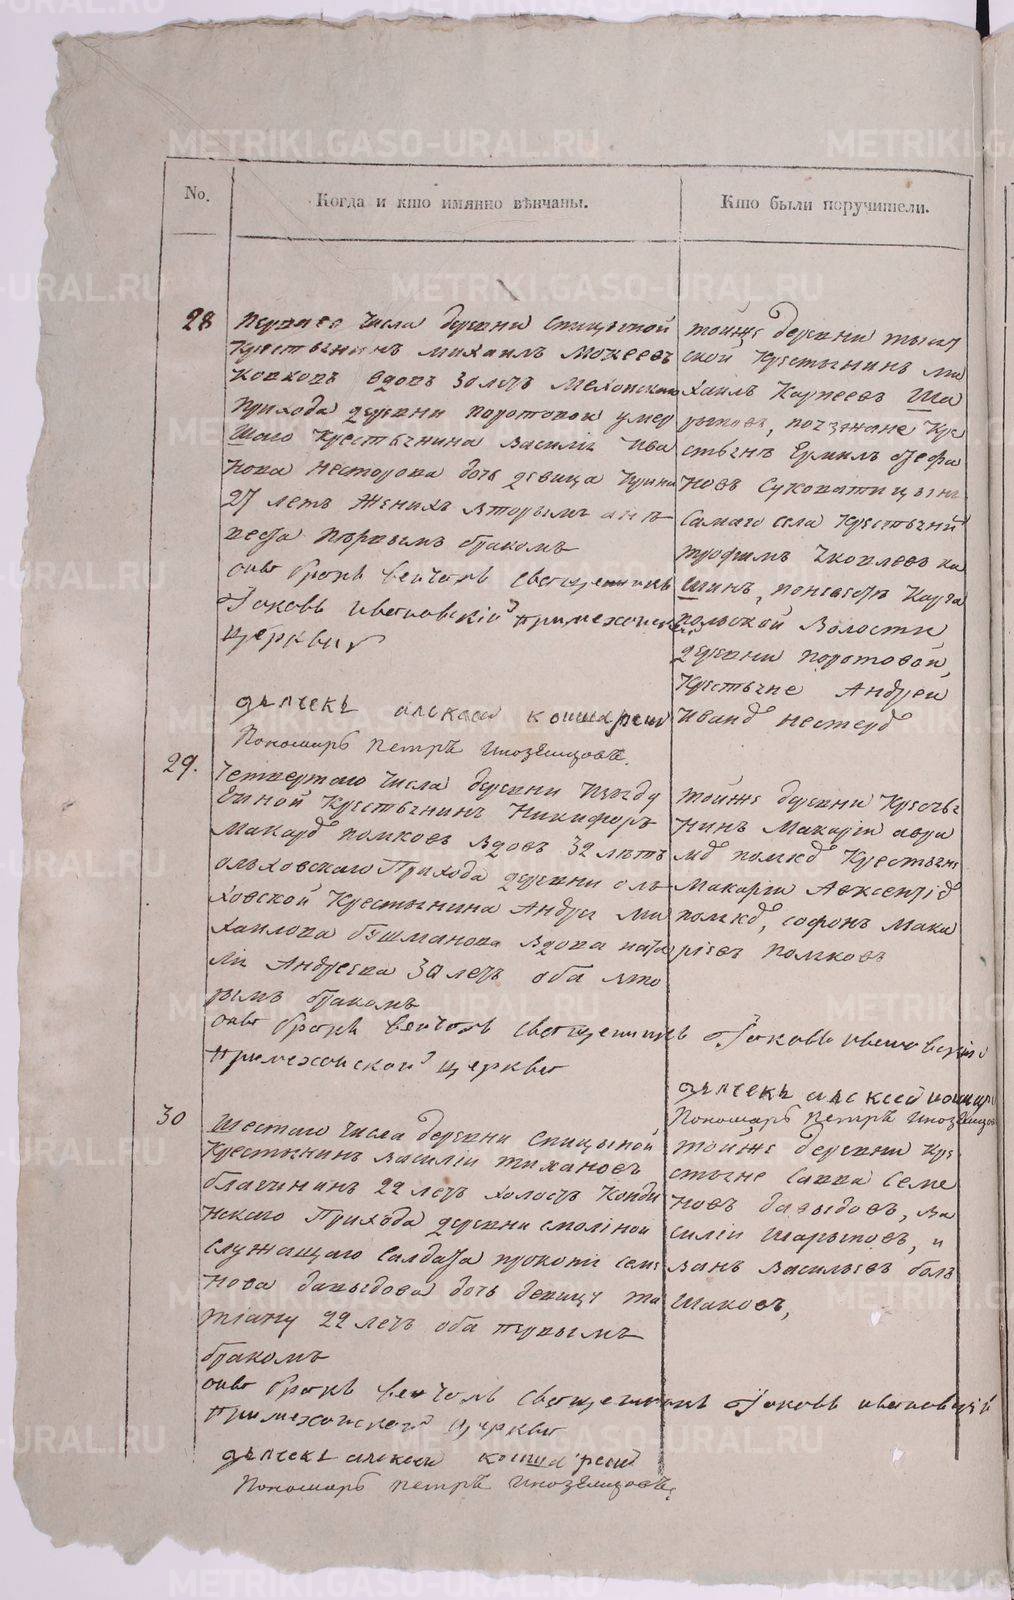 METRIKI.GASO-URAL.RU
No.
Когда и кто имянно вѣнчаны.
Кто были поручители.
28
Перваго числа деревни Спицыной
Крестьянинъ Михаилъ Мокеевъ
вдовъ 30 летъ Мехонскаго
Прихода деревни Поротовой умер
шаго Крестьянина Василія Ива
нова Несторова дочь девица Ирина
27 летъ Женихъ вторымъ а не
веста первымъ бракомъ
оный бракъ венчалъ священникъ
Іаковъ Ивановскій
церкви
дьячекъ алексей
Пономарь Петръ Иноземцовъ.
тойже деревни
ской Крестьянинъ Ми
хаилъ Карпеевъ Ша
рыповъ, Кре
стьянъ Ермилъ Стефа
новъ
самаго села Крестьянин
трофимъ Яковлевъ ка
шинъ, Карга
польской Волости
деревни Поротовой,
Крестьяне Андрей
Иванов Нестеров
29.
Четвертаго числа деревни
Крестьянинъ Никифоръ
Макаров Помковъ вдовъ 32 летъ
ольховскаго Прихода деревни оль
ховской Крестьянина Андрея Ми
хаилова Бушманова вдова ната
лія Андреева 30 летъ оба вто
рымъ бракомъ
оный бракъ венчалъ священникъ Іаковъ Ивановскій
церкви
тойже деревни Крестья
нинъ Макарій
Помков Крестьяне
Макарій Авксентіев
Помков, софонъ Мака
ріевъ Помковъ
дьячекъ алексей
Пономарь Петръ Иноземцовъ
30
Шестаго числа деревни Спицыной
Крестьянинъ Василій Тихановъ
благининъ 22 летъ холостъ Конди
нскаго Прихода деревни Смолиной
служащаго Салдата прокопія семе
нова давыдова дочь девицу та
тіану 22 летъ оба первымъ
бракомъ
оный бракъ венчалъ священникъ Іаковъ Ивановскій
церкви
дьячекъ алексей
Пономарь Петръ Иноземцовъ.
тойже деревни Кре
стьяне Савва Семе
новъ давыдовъ, Ва
силій Шарыповъ, и
ванъ Васильевъ боль
шаковъ,